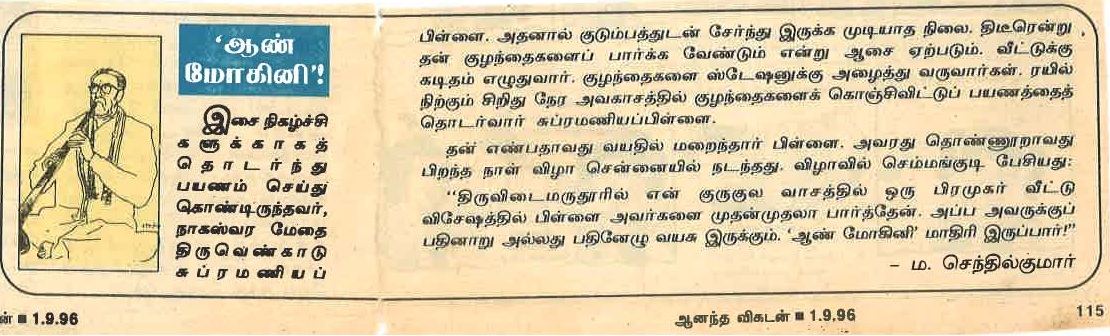 'ஆண்
மோகினி'!
இசை நிகழ்ச்சி
களுக்காகத்
தொடர்ந்து
பயணம் செய்து
கொண்டிருந்தவர்,
நாகஸ்வர மேதை
திருவெண்காடு
சுப்ரமணியப்
பிள்ளை. அதனால் குடும்பத்துடன் சேர்ந்து இருக்க முடியாத நிலை. திடீரென்று
தன் குழந்தைகளைப் பார்க்க வேண்டும் என்று ஆசை ஏற்படும். வீட்டுக்கு
கடிதம் எழுதுவார். குழந்தைகளை ஸ்டேஷனுக்கு அழைத்து வருவார்கள். ரயில்
நிற்கும் சிறிது நேர அவகாசத்தில் குழந்தைகளைக் கொஞ்சிவிட்டுப் பயணத்தைத்
தொடர்வார் சுப்ரமணியப்பிள்ளை.
தன் எண்பதாவது வயதில் மறைந்தார் பிள்ளை. அவரது தொண்ணூறாவது
பிறந்த நாள் விழா சென்னையில் நடந்தது. விழாவில் செம்மங்குடி பேசியது:
"திருவிடைமருதூரில் என் குருகுல வாசத்தில் ஒரு பிரமுகர் வீட்டு
விசேஷத்தில் பிள்ளை அவர்களை முதன்முதலா பார்த்தேன். அப்ப அவருக்குப்
பதினாறு அல்லது பதினேழு வயசு இருக்கும். 'ஆண் மோகினி' மாதிரி இருப்பார்!"
– ம. செந்தில்குமார்
ன் ■ 1.9.96
ஆனந்த விகடன் ■ 1.9.96
115